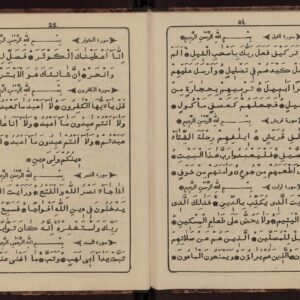 24.
سورة الفيل بسم الله الرحمن الرحيم
تر كيف فعل ربك باصحب الفيل الم
كيدهم في تضليل وارسل عليهم
ابابيل ترميهم بحجارة من
فجعلهم كعصف ماكول
سورة قريش بسم الله الرحمن الرحيم
قريش ايلفهم رحلة الشتاء
فليعبدوا رب هذا البيت
اطعمهم من جوع وامنهم من خوف
بسم الله الرحمن الرحيم
ارءيت الذي يكذب بالدين فذلك الذي
اليتيم ولا يحض على طعام المسكين
للمصلين الذين هم عن صلاتهم
الذين هم يراءون ويمنعون الماعون
25.
سورة الكوثر بسم الله الرحمن الرحيم
انا اعطينك الكوثر فصل لربك
وانحر ان شانئك هو الابتر
سورة الكافرون بسم الله الرحمن الرحيم
قل يايها الكفرون لا اعبد ما تعبدون
ولا انتم عبدون ما اعبد ولا انا عابد ما
عبدتم ولا انتم عبدون ما اعبد لكم
دينكم ولي دين
سورة النصر بسم الله الرحمن الرحيم
اذا جاء نصر الله والفتح ورايت الناس
يدخلون في دين الله افواجا فسبح بحمد
ربك واستغفره انه كان توابا
بسم الله الرحمن الرحيم
تبت يدا ابي لهب وتب ما اغنى عنه